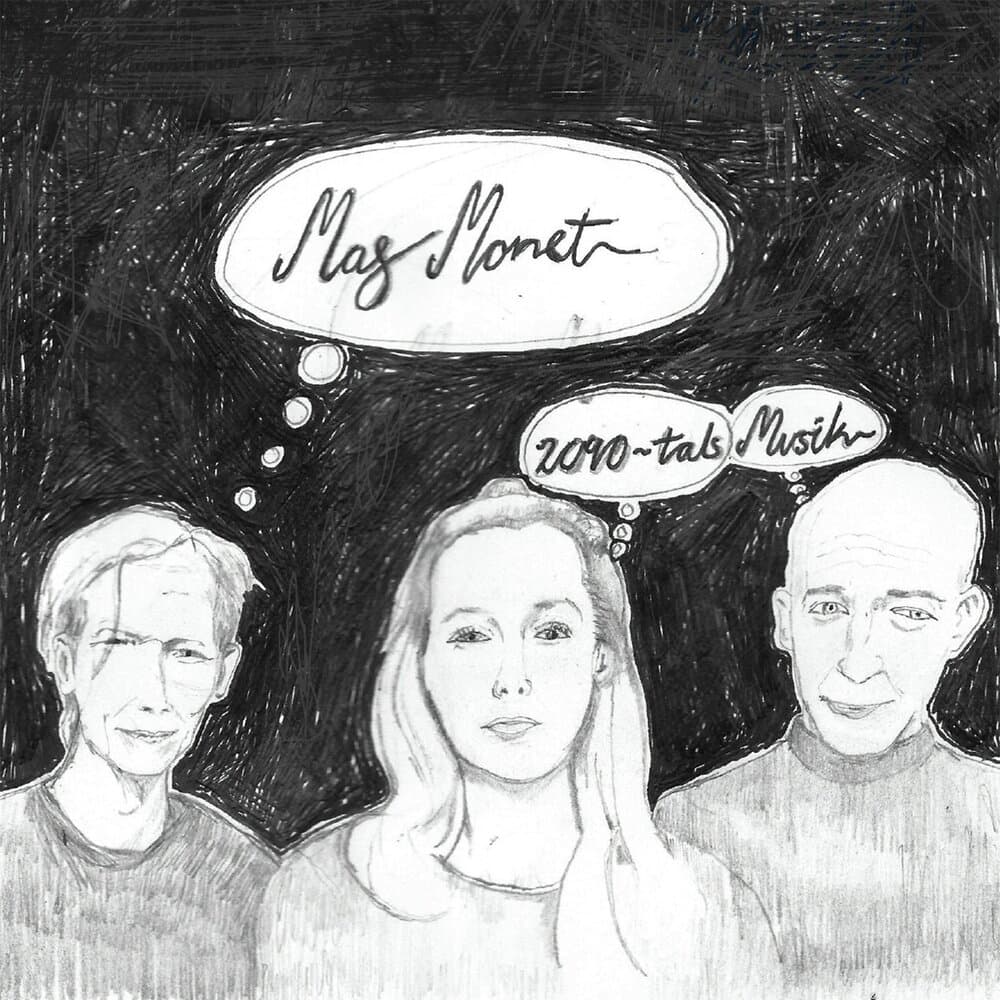 Mag Monet
2090-tals
Musik